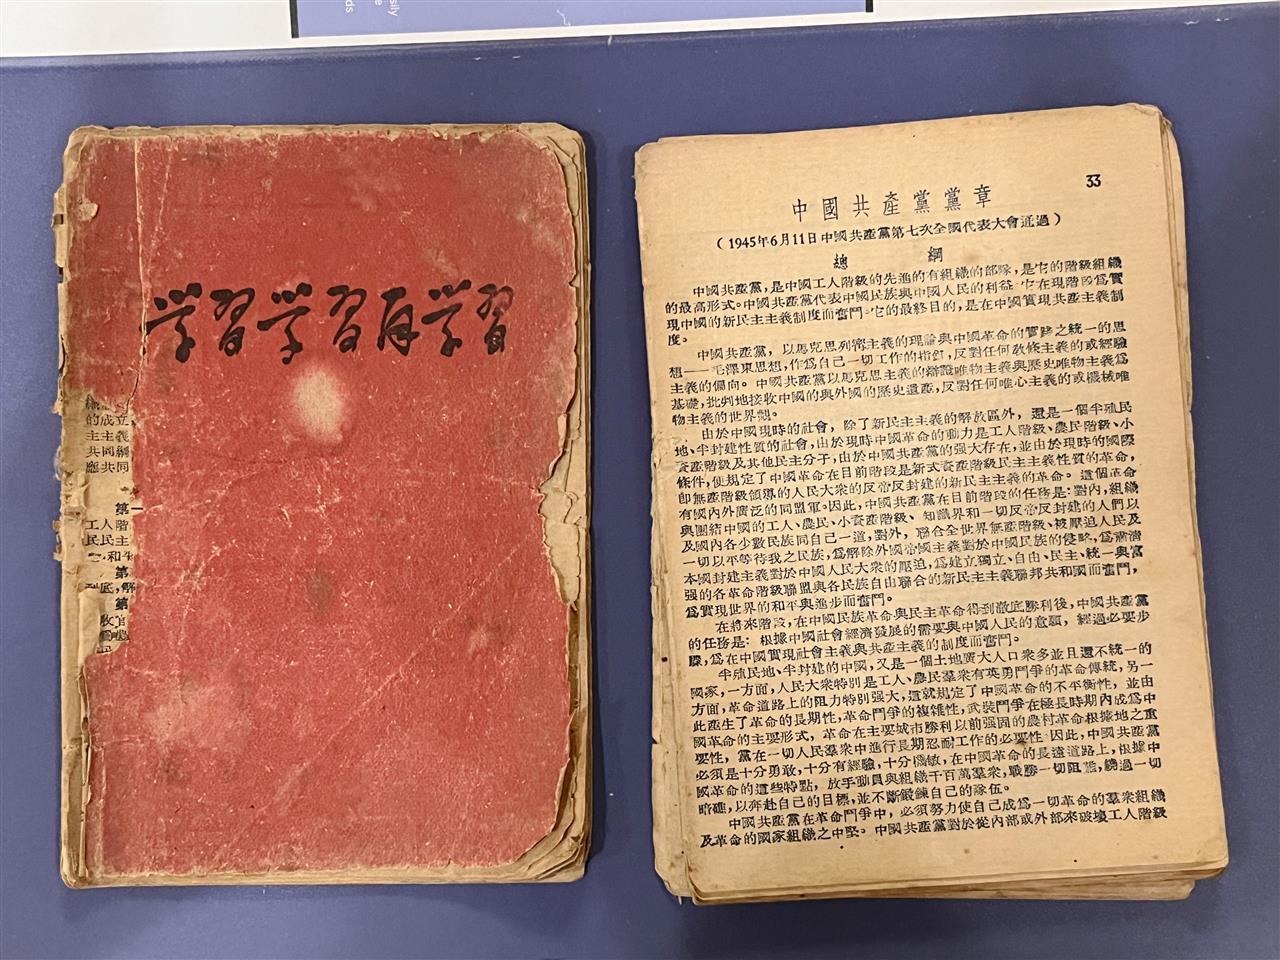 sily
e
ds
学習学習再学習
的成立
主主義
共同綱
應共同
第一
工人階
民民主
第
到底,解
第
33
中國共產黨黨章
(1945年6月11日中國共產黨第七次全國代表大會通過)
總 綱
中國共產黨,是中國工人階級的先進的有組織的部隊,是它的階級組織
的最高形式。中國共產黨代表中國民族與中國人民的利益。它在現階段爲實
現中國的新民主主義制度而奮鬥。它的最終目的,是在中國實現共產主義制
度。
中國共產黨,以馬克思列寧主義的理論與中國革命的實踐之統一的思
想——毛澤東思想,作爲自己一切工作的指針,反對任何敎條主義的或經驗
主義的偏向。中國共產黨以馬克思主義的辯證唯物主義與歷史唯物主義爲
基礎,批判地接收中國的與外國的歷史遺產,反對任何唯心主義的或機械唯
物主義的世界觀。
由於中國現時的社會,除了新民主主義的解放區外,還是一個半殖民
地、半封建性質的社會,由於現時中國革命的動力是工人階級、農民階級、小
資產階級及其他民主分子,由於中國共產黨的强大存在,並由於現時的國際
條件,便規定了中國革命在目前階段是新式資產階級民主主義性質的革命,
卽無產階級領導的人民大衆的反帝反封建的新民主主義的革命。這個革命
有國內外廣泛的同盟軍。因此,中國共產黨在目前階段的任務是:對內,組織
與團結中國的工人、農民、小資產階級、知識界和一切反帝反封建的人們以
及國內各少數民族同自己一道,對外,聯合全世界無產階級、被壓迫人民及
一切以平等待我之民族,爲解除外國帝國主義對於中國民族的侵略,爲肅淸
本國封建主義對於中國人民大衆的壓迫,爲建立獨立、自由、民主、統一與富
强的各革命階級聯盟與各民族自由聯合的新民主主義聯邦共和國而奮鬥,
爲實現世界的和平與進步而奮鬥。
在將來階段,在中國民族革命與民主革命得到澈底勝利後,中國共產黨
的任務是:根據中國社會經濟發展的需要與中國人民的意願,經過必要步
驟,爲在中國實現社會主義與共產主義的制度而奮鬥。
半殖民地、半封建的中國,又是一個土地廣大人口衆多並且還不統一的
國家,一方面,人民大衆特別是工人、農民羣衆有英勇鬥爭的革命傳統,另一
方面,革命道路上的阻力特別强大,這就規定了中國革命的不平衡性,並由
此產生了革命的長期性,革命鬥爭的複雜性,武裝鬥爭在極長時期內成爲中
國革命的主要形式,革命在主要城市勝利以前强固的農村革命根據地之重
要性,黨在一切人民羣衆中進行長期忍耐工作的必要性。因此,中國共產黨
必須是十分勇敢,十分有經驗,十分機敏,在中國革命的長遠道路上,根據中
國革命的這些特點,放手動員與組織千百萬羣衆,戰勝一切阻難,繞過一切
暗礁,以奔赴自己的目標,並不斷鍛鍊自己的隊伍。
中國共產黨在革命鬥爭中,必須努力使自己成爲一切革命的羣衆組織
及革命的國家組織之中堅。中國共產黨對於從內部或外部來破壞工人階級